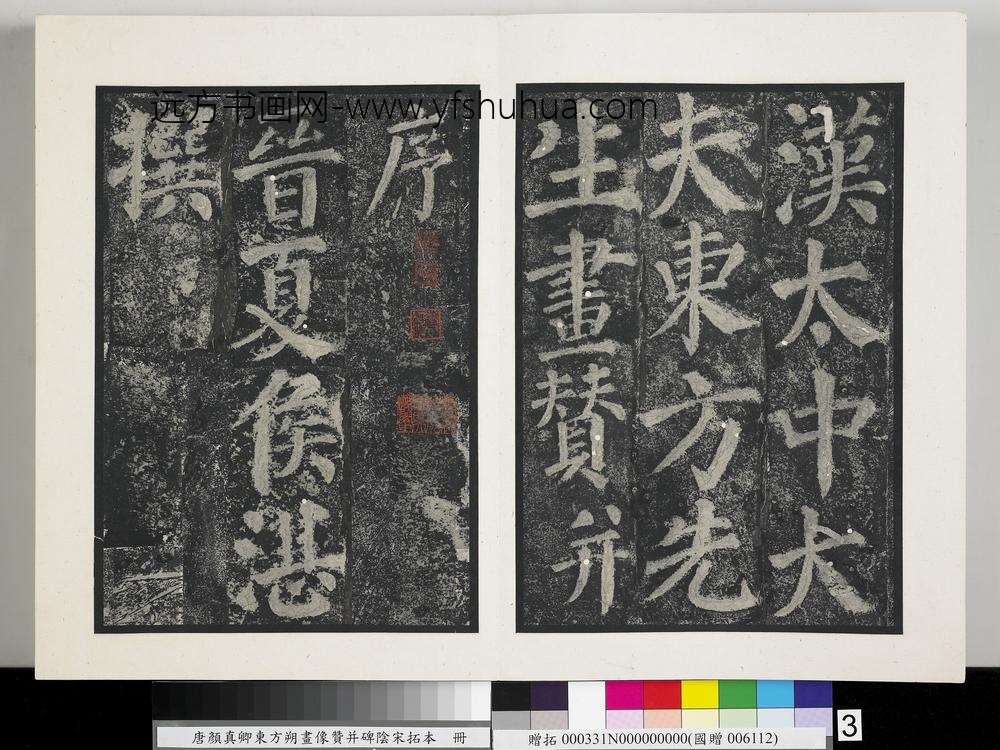 远方书画网-www.yfshuhua.com
漢太中大
夫東方先
生畫賛并
序
晉夏侯湛
撰
唐顏真卿東方朔畫像贊并碑陰宋拓本 冊
贈拓 000331N000000000(國贈 006112)
3